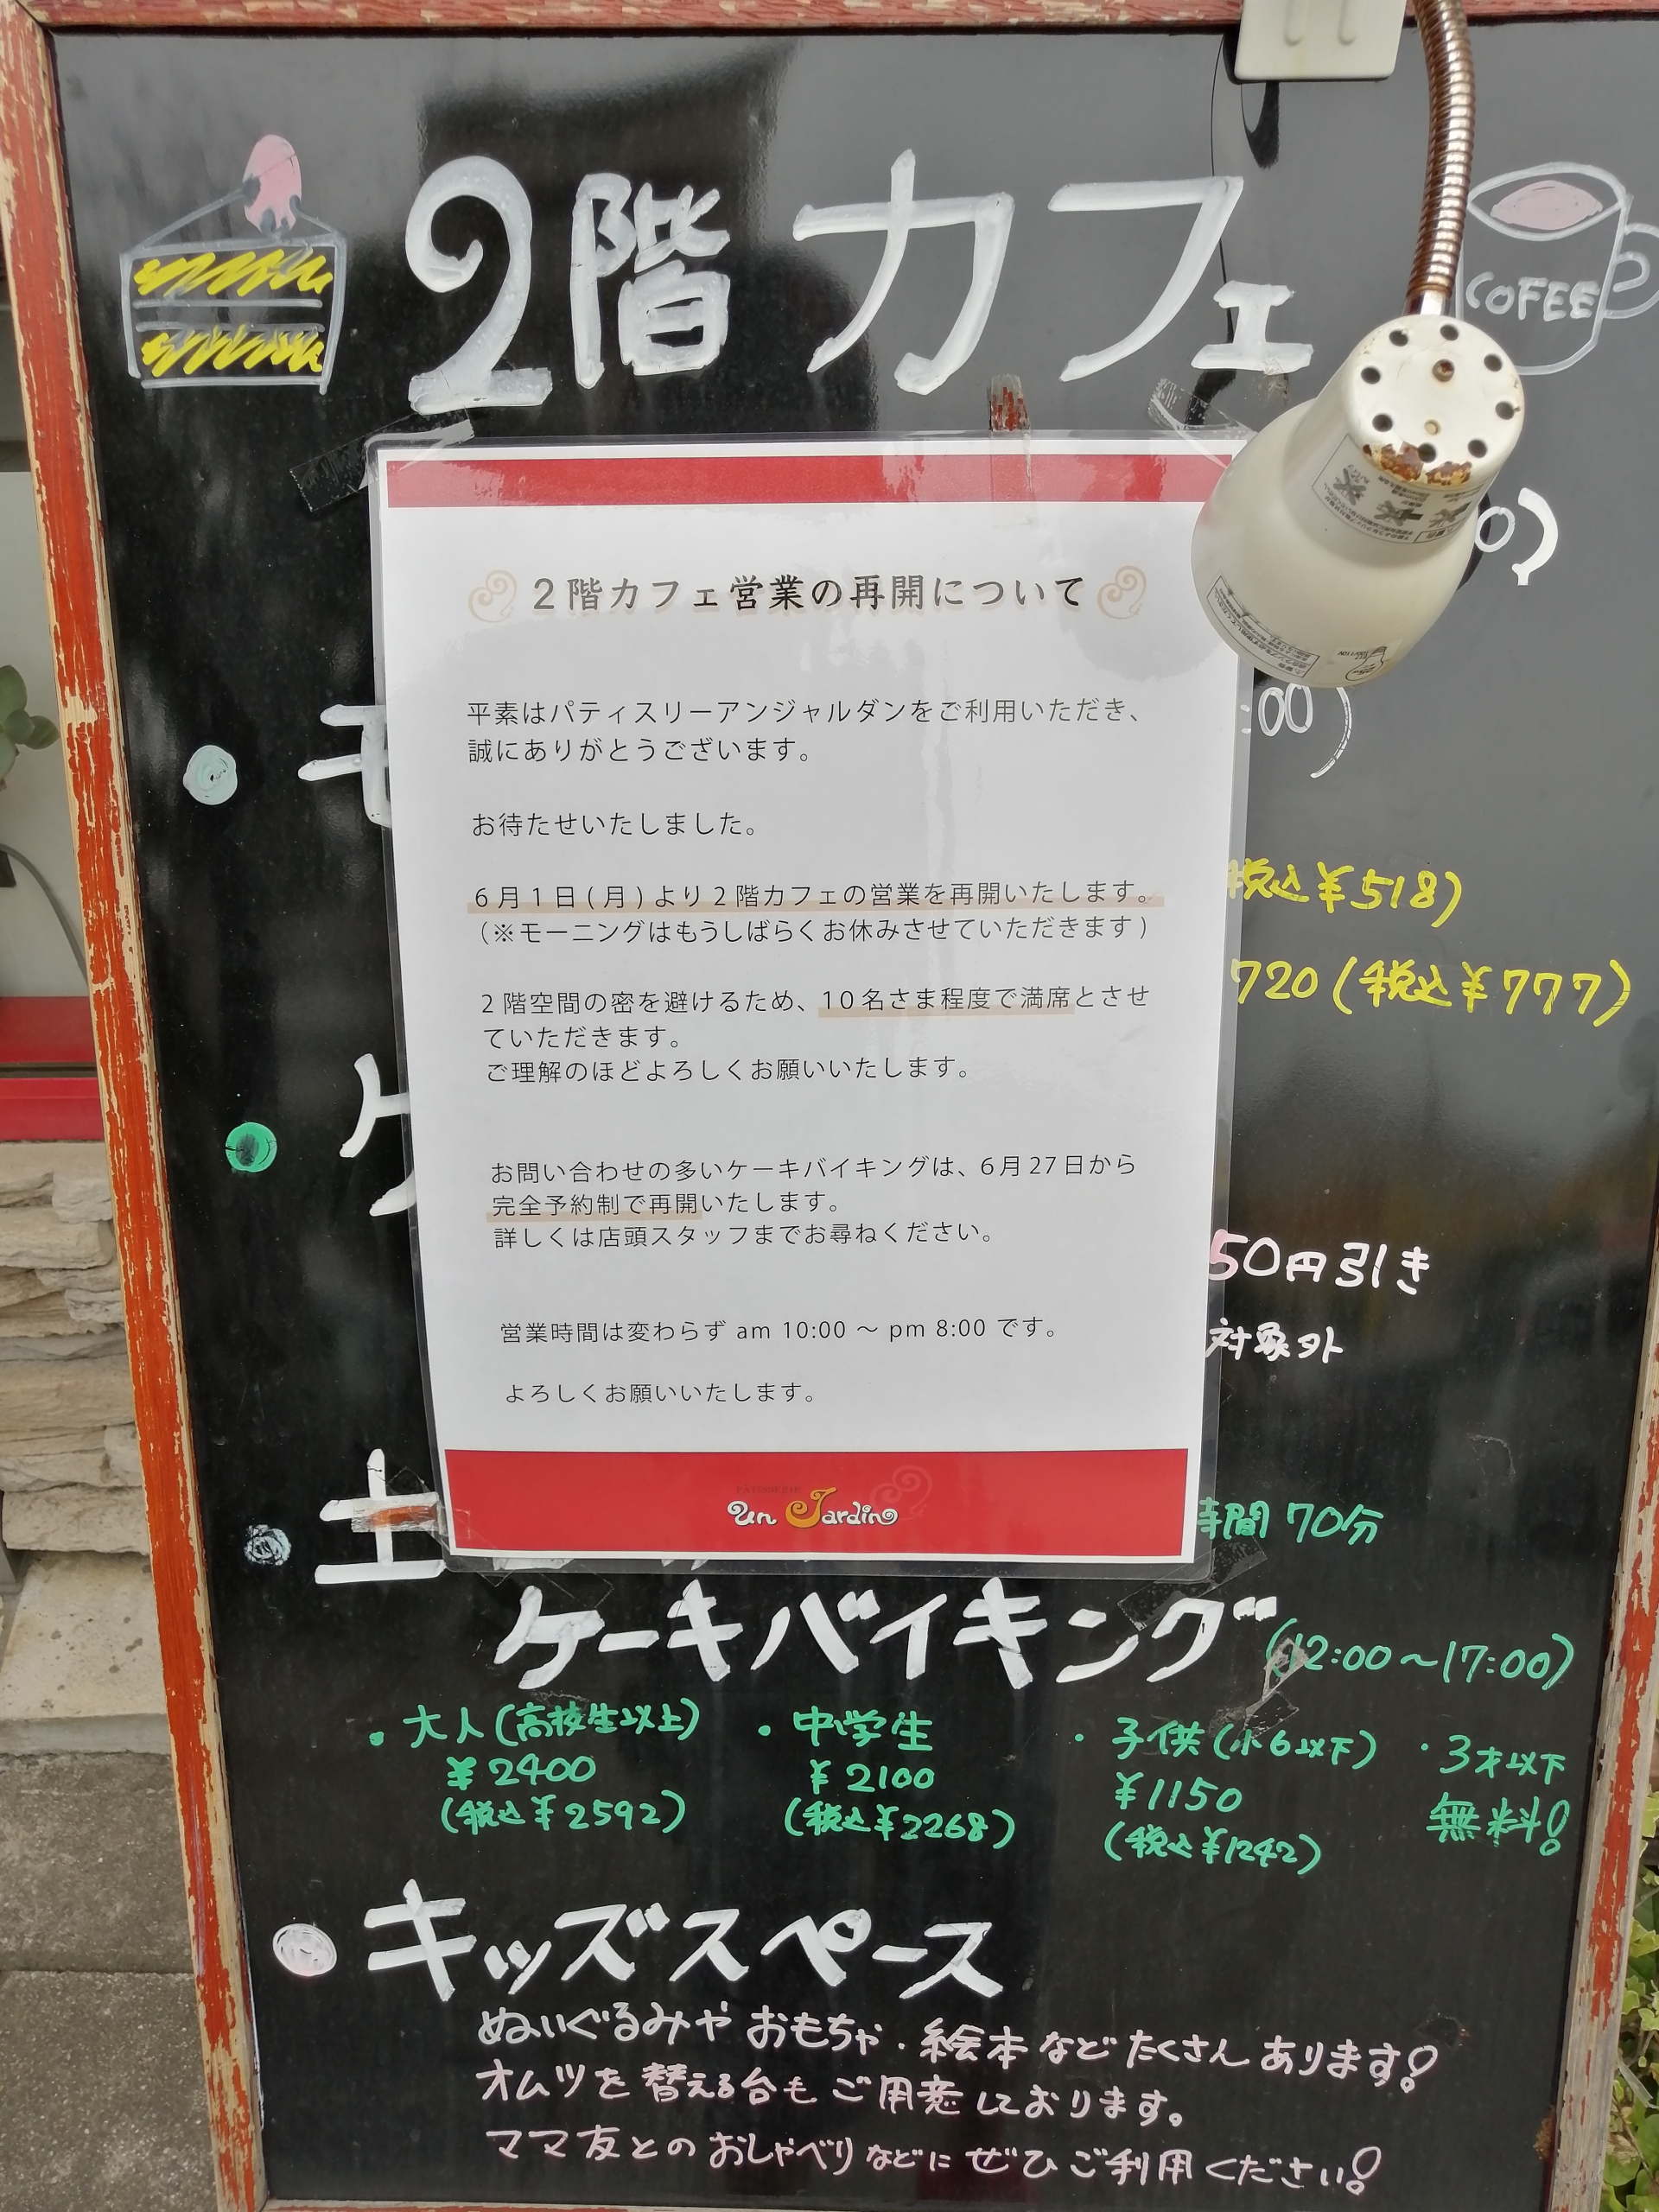 2階カフェ
COFEE
0)
2階カフェ営業の再開について
平素はパティスリーアンジャルダンをご利用いただき、
誠にありがとうございます。
お待たせいたしました。
6月1日(月)より2階カフェの営業を再開いたします。
(※モーニングはもうしばらくお休みさせていただきます)
2階空間の密を避けるため、10名さま程度で満席とさせ
ていただきます。
ご理解のほどよろしくお願いいたします。
お問い合わせの多いケーキバイキングは、6月27日から
完全予約制で再開いたします。
詳しくは店頭スタッフまでお尋ねください。
営業時間は変わらず am 10:00 ～ pm 8:00 です。
よろしくお願いいたします。
PATISSERIE
un Jardin
モ
:00)
税込¥518)
720(税込¥777)
ケ
50円引き
対象外
土
時間 70分
ケーキバイキング (12:00～17:00)
・大人(高校生以上) ・中学生 ・子供(小6以下) ・3才以下
¥2400 ¥2100 ¥1150 無料!
(税込¥2592) (税込¥2268) (税込¥1242)
キッズスペース
ぬいぐるみや おもちゃ・絵本などたくさんあります!
オムツを替える台もご用意しております。
ママ友とのおしゃべりなどにぜひご利用ください!